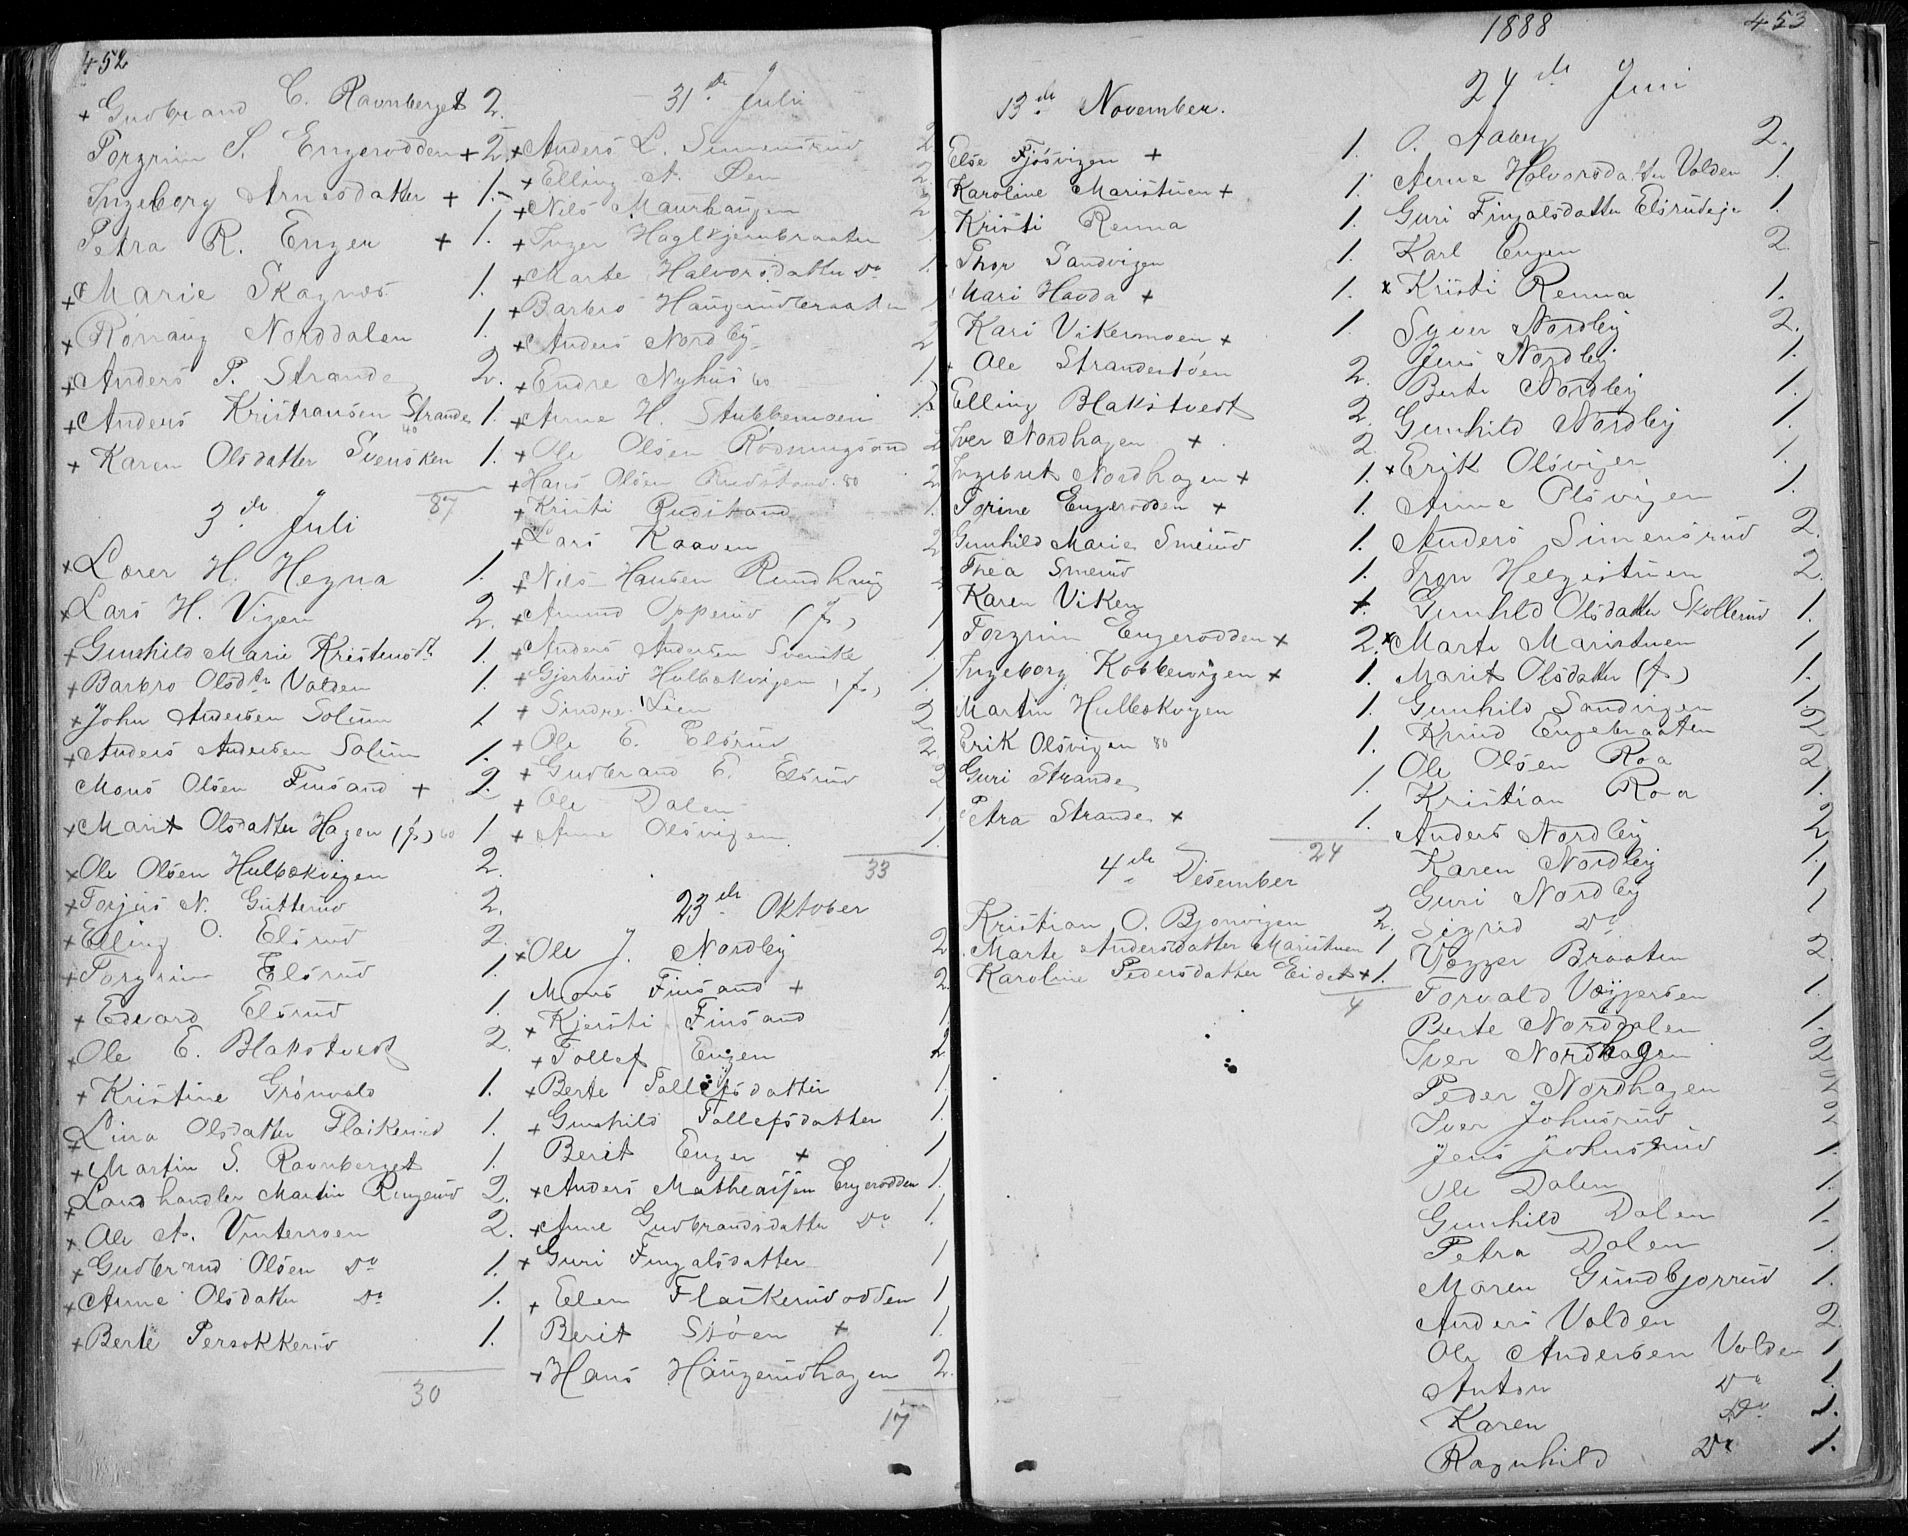 452
+ Gudbrand C. Ravnberget 2.
Torgrim S. Engerodden + 2.
Ingeborg Arnesdatter + 1.
Petra R. Engen + 1.
+ Marie Skagnæs 1.
+ Rønnaug Norddalen 1.
+ Anders P. Strande 2.
+ Anders Kristiansen Strande 1.
40
+ Karen Olsdatter Svensken 1.
87
3die Juli
+ Lorer H. Hegna 1.
+ Lars H. Vigen 2.
+ Gunhild Marie Kristensdt. 1.
+ Barbro Olsdtr Valden 1.
+ John Andersen Solum 1.
+ Anders Andersen Solum 1.
Mons Olsen Finsand + 2.
+ Marit Olsdatter Hagen (f.) 60 1.
+ Ole Olsen Hulbækvigen 2.
+ Torjus N. Gutterud 2.
+ Elling O. Elsrud 2.
+ Torgrim Elsrud 1.
+ Edvard Elsrud 1.
+ Ole E. Blakstvedt 2.
+ Kristine Grønvold 1.
+ Lina Olsdatter Flaskerud 1.
+ Martin S. Ravnberget 1.
+ Landhandler Martin Ringerud 2.
+ Ole A. Vintermoen 2.
+ Gudbrand Olsen Do 1.
+ Anne Olsdatter Do 1.
+ Berte Persokkerud 1.
30
31te Juli
+ Anders L. Simensrud 2
+ Elling A. Øen 2
+ Nils Maurhaugen 2
+ Inger Haglkjernbraaten 1
+ Marte Halvorsdatter Do 1.
+ Barbro Haugerudbraaten 1
+ Anders Nordby 2
+ Endre Nyhus 60 1.
+ Anne H. Stubbemoen 1.
+ Ole Olsen Rødningsand 2
+ Hans Olsen Rudstand 80 2
+ Kristi Rudstand 1.
+ Lars Kaaven 2
+ Nils Hansen Rundhaug
+ Amund Opperud (f.) 1
+ Anders Andersen Svenske 1
+ Gjertrud Hulbækvigen (f.) 1.
+ Sindre Lien 2.
+ Ole E. Elsrud 2.
+ Gudbrand E. Elsrud 2
+ Ole Dalen 1.
+ Anne Olsvigen 1.
33
23de Oktober
+ Ole J. Nordby 2
Mons Finsand + 2.
+ Kjersti Finsand 1
+ Tollef Engen 2
+ Berte Tollefsdatter 1
+ Gunhild Tollefsdatter 1.
Berit Engen + 1
+ Anders Matheasen Engerodden 1.
+ Anne Gudbrandsdatter Do 1.
+ Guri Fingalsdatter 1
+ Elen Flaskerudodden 1
Berit Støen + 1.
+ Hans Haugerudhagen 2.
17
13de November.
Else Fjøsvigen + 1.
Karoline Maristuen + 1.
Kristi Renna 1.
Thor Sandvigen 1.
Mari Havda + 1.
Kari Vikermoen + 1.
+ Ole Strandestøen 2.
Elling Blakstvedt 2.
Iver Nordhagen + 2.
Ingebret Nordhagen + 1.
Torine Engerodden + 1.
Gunhild Marie Smerud 1.
Thea Smerud 1.
Karen Viken 1.
Torgrim Engerodden + 2.
Ingeborg Kobbervigen + 1.
Martin Hulbækvigen 1.
Erik Olsvigen 80 1.
Guri Strande 1.
Petra Strande + 1.
24
4de Desember
Kristian O. Bjonvigen 2.
Marte Andersdatter Maristuen 1
Karoline Pedersdatter Eidet + 1.
4
1888
453
24de Juni
O. Aaberg 2.
Anne Halvorsdatter Valden 1.
Guri Fingalsdatter Elsrudeje 1.
Karl Engen 2.
x Kristi Renna 1.
Syver Nordby 2.
Jens Nordby 1.
Berte Nordby 1.
Gunhild Nordby 1.
x Erik Olsvigen 1.
Anne Olsvigen 1.
Anders Simensrud 2.
Tron Helgestuen 2.
Gunhild Olsdatter Skollerud 1.
x Marte Maristuen 1.
Marit Olsdatter (f.) 1.
Gunhild Sandvigen 1.
Knud Engebraaten 2
Ole Olsen Roa 2.
Kristian Roa 1.
Anders Nordby 2
Karen Nordby 1.
Guri Nordby 1
Sigrid Do 1
Vegger Braaten 2.
Torvald Veggersen 1.
Berte Norddalen 1.
Iver Nordhagen 2
Peder Nordhagen 2
Iver Johnsrud 2
Jens Johnsrud 1.
Ole Dalen 1.
Gunhild Dalen 1.
Petra Dalen 1.
Maren Gundbjørrud 1.
Anders Valden 2.
Ole Andersen Valden 1
Anton Do 1.
Karen Do 1.
Ragnhild Do 1.